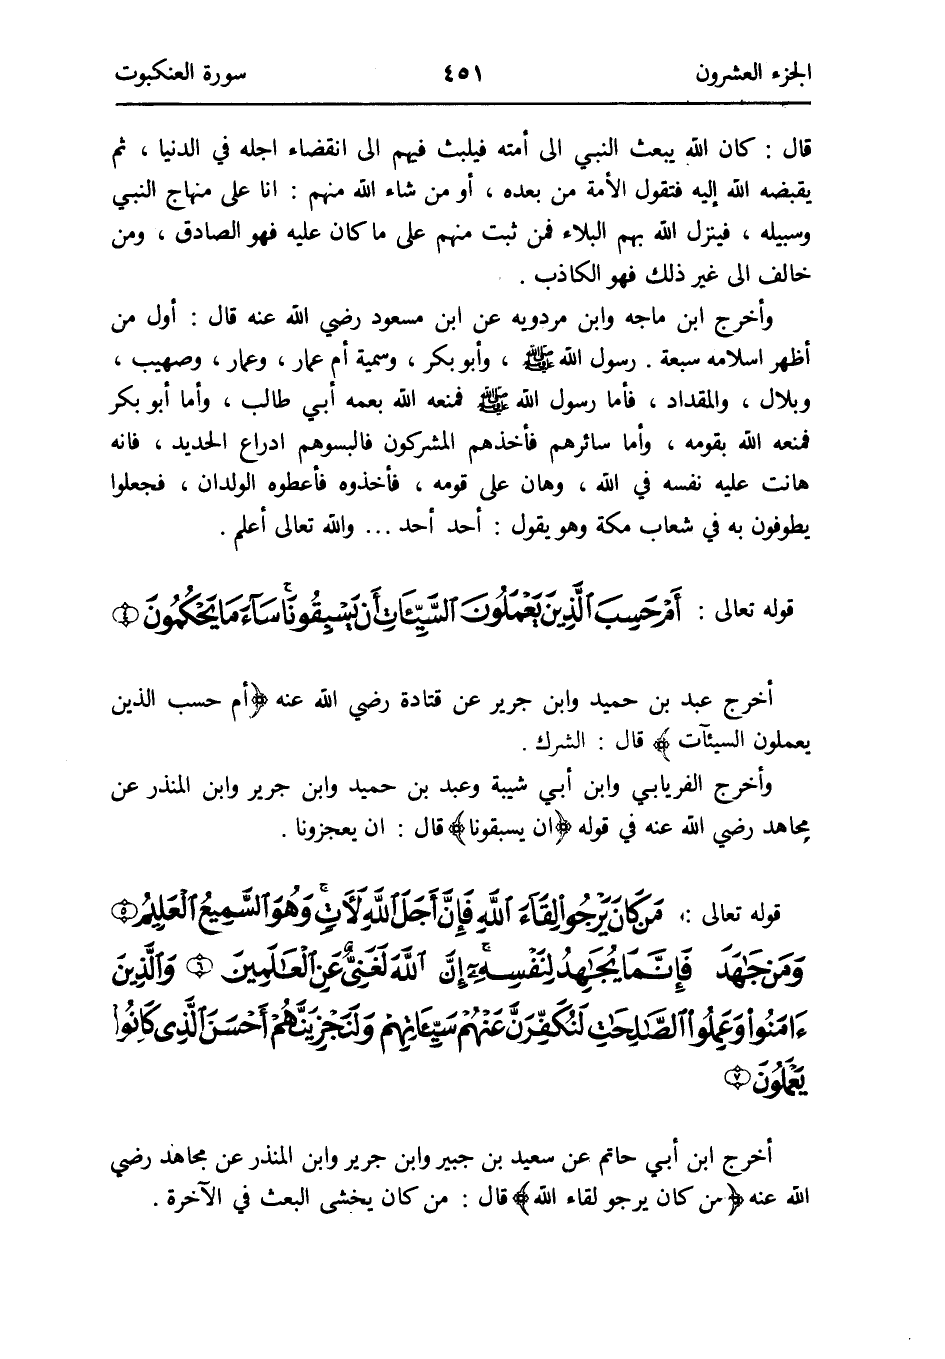 الجزء العشرون ٤٥١ سورة العنكبوت
قال : كان الله يبعث النبي الى أمته فيلبث فيهم الى انقضاء اجله في الدنيا ، ثم
يقبضه الله إليه فتقول الأمة من بعده ، أو من شاء الله منهم : انا على منهاج النبي
وسبيله ، فينزل الله بهم البلاء فمن ثبت منهم على ما كان عليه فهو الصادق ، ومن
خالف الى غير ذلك فهو الكاذب .
وأخرج ابن ماجه وابن مردويه عن ابن مسعود رضي الله عنه قال : أول من
أظهر اسلامه سبعة . رسول الله ﷺ ، وأبو بكر ، وسمية أم عمار ، وعمار ، وصهيب ،
وبلال ، والمقداد ، فأما رسول الله ﷺ فمنعه الله بعمه أبي طالب ، وأما أبو بكر
فمنعه الله بقومه ، وأما سائرهم فأخذهم المشركون فالبسوهم ادراع الحديد ، فانه
هانت عليه نفسه في الله ، وهان على قومه ، فأخذوه فأعطوه الولدان ، فجعلوا
يطوفون به في شعاب مكة وهو يقول : أحد أحد ... والله تعالى أعلم .
قوله تعالى : أَمْ حَسِبَ ٱلَّذِينَ يَعْمَلُونَ ٱلسَّيِّـَٔاتِ أَن يَسْبِقُونَا ۚ سَآءَ مَا يَحْكُمُونَ ﴿٤﴾
أخرج عبد بن حميد وابن جرير عن قتادة رضي الله عنه ﴿أم حسب الذين
يعملون السيئآت ﴾ قال : الشرك .
وأخرج الفريابي وابن أبي شيبة وعبد بن حميد وابن جرير وابن المنذر عن
مجاهد رضي الله عنه في قوله ﴿ان يسبقونا﴾ قال : ان يعجزونا .
قوله تعالى : مَن كَانَ يَرْجُوا۟ لِقَآءَ ٱللَّهِ فَإِنَّ أَجَلَ ٱللَّهِ لَأٓتٍ ۚ وَهُوَ ٱلسَّمِيعُ ٱلْعَلِيمُ ﴿٥﴾
وَمَن جَٰهَدَ فَإِنَّمَا يُجَٰهِدُ لِنَفْسِهِۦٓ ۚ إِنَّ ٱللَّهَ لَغَنِىٌّ عَنِ ٱلْعَٰلَمِينَ ﴿٦﴾ وَٱلَّذِينَ
ءَامَنُوا۟ وَعَمِلُوا۟ ٱلصَّٰلِحَٰتِ لَنُكَفِّرَنَّ عَنْهُمْ سَيِّـَٔاتِهِمْ وَلَنَجْزِيَنَّهُمْ أَحْسَنَ ٱلَّذِى كَانُوا۟
يَعْمَلُونَ ﴿٧﴾
أخرج ابن أبي حاتم عن سعيد بن جبير وابن جرير وابن المنذر عن مجاهد رضي
الله عنه ﴿من كان يرجو لقاء الله﴾ قال : من كان يخشى البعث في الآخرة .